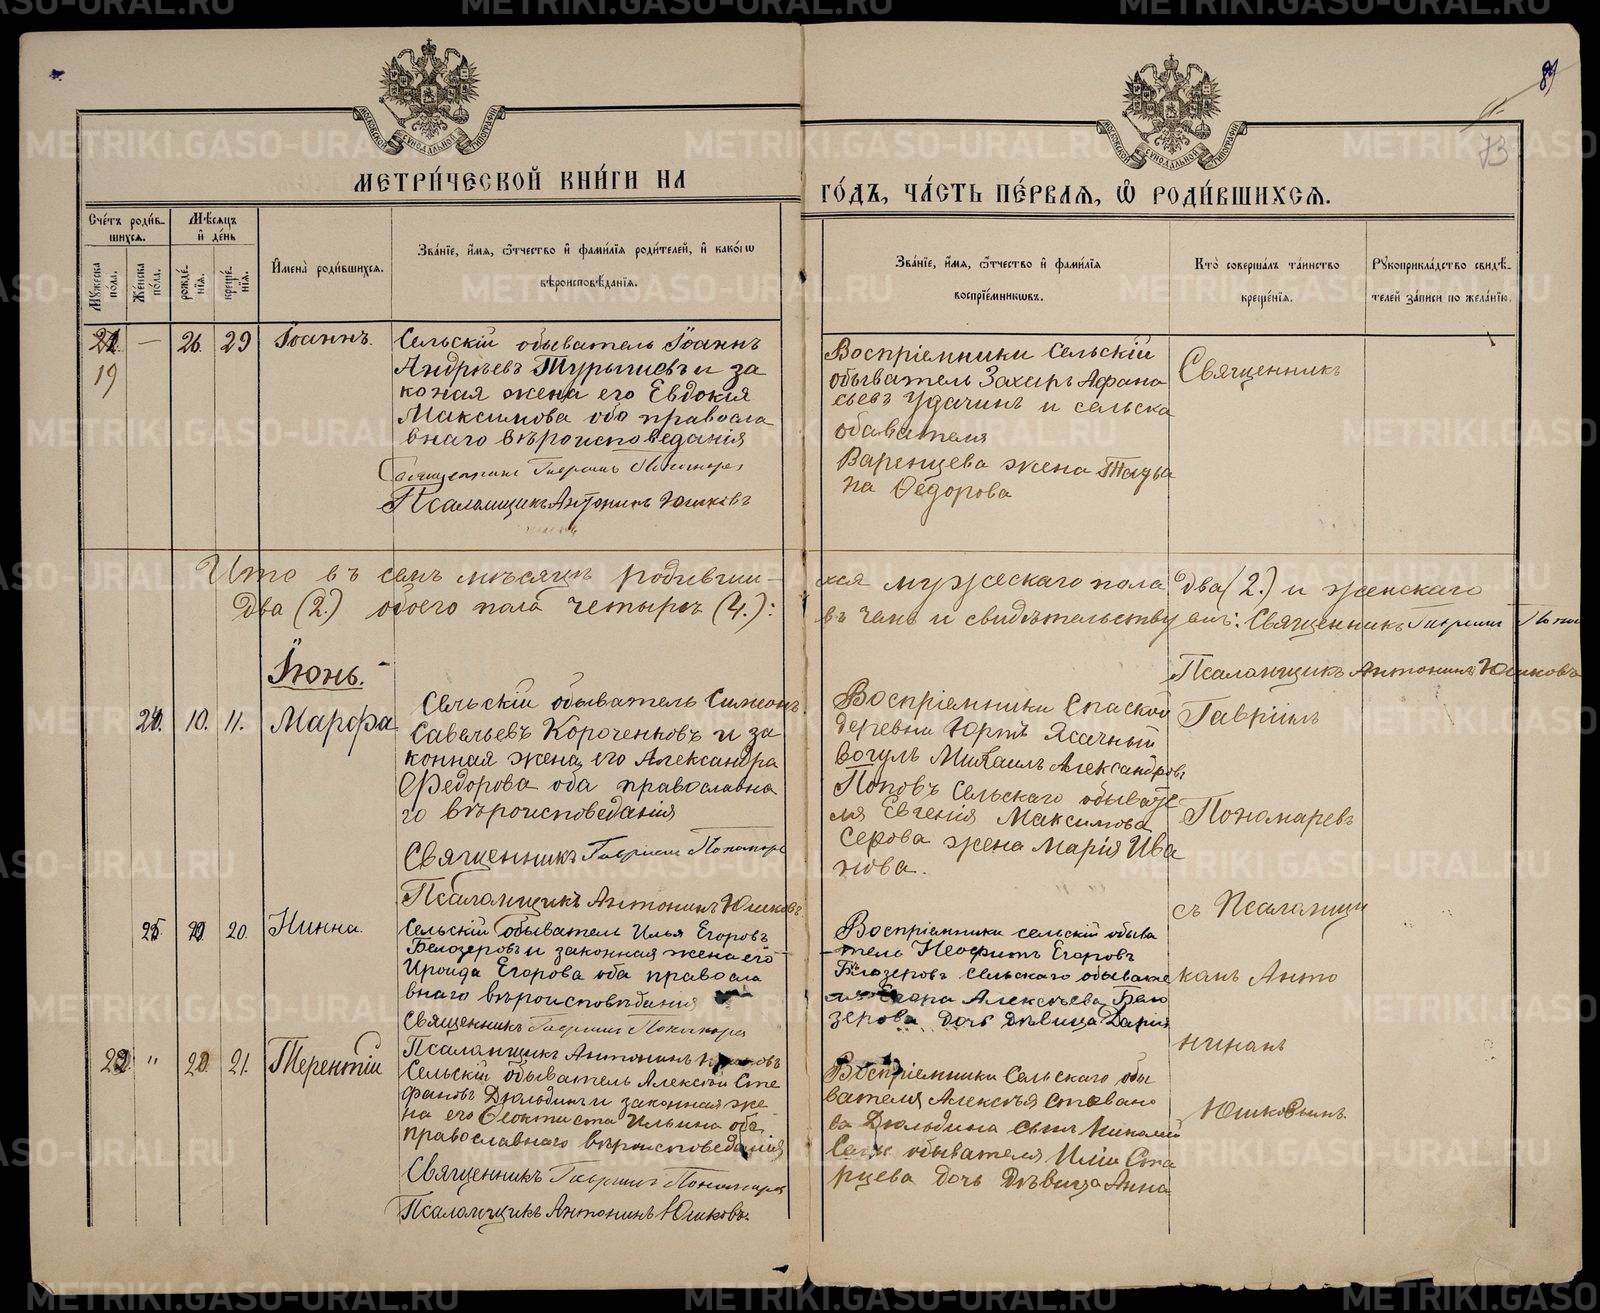 МЕТРИ́ЧЕСКОЙ КНИ́ГИ НА
ГО́ДЪ, ЧА́СТЬ ПЕ́РВАЯ, Ѡ҆ РОДИ́ВШИХСЯ.
Сче́тъ роди́вшихся.
Мѣ́сяцъ и҆ де́нь
Му́жеска по́ла.
Же́нска по́ла.
рожде́нїя.
креще́нїя.
И҆мена̀ роди́вшихся.
Зва́нїе, и҆́мя, ѻ҆́тчество и҆ фами́лїя роди́телей, и҆ како́гѡ
вѣроисповѣ́данїя.
Зва́нїе, и҆́мя, ѻ҆́тчество и҆ фами́лїя
воспрїе́мникѡвъ.
Кто̀ соверша́лъ та́инство
креще́нїя.
Рꙋкоприкла́дство свидѣ́-
телей за́писи по жела́нїю.
73
19
—
26.
29
Іоаннъ.
Сельскій обыватель Іоаннъ
Андреевъ и за
коная жена его Евдокія
Максимова оба правосла
внаго вѣроисповеданія
Священникъ Гавріилъ Пономаре
Псаломщикъ Антонинъ Юшковъ
Воспріемники Сельскій
обыватель Захаръ Афана
сьевъ Удачинъ и сельска
обавателя
Варенцева жена Татья
на Федорова
Священникъ
Итого въ семъ мѣсяцѣ родивши-
хся мужескаго пола два (2.) и женскаго
два (2.) обоего пола четыре (4.):
въ чемъ и свидѣтельствуемъ: Священникъ Гавріилъ
Псаломщикъ Антонинъ Юшковъ
Іюнь.-
10.
11.
Марфа
Сельскій обыватель Симеонъ
Савельевъ Короченковъ и за
конная жена его Александра
Федорова оба православна
го вѣроисповеданія
Священникъ Гавріилъ Пономаре
Псаломщикъ Антонинъ Юшковъ
Воспріемники Спаской
деревни Юртъ Ясачный
вогулъ Михаилъ Александров
Поповъ Сельскаго обывате
ля Евгенія Максимова
Серова жена Марія Ива
нова.
Гавріилъ
Пономаревъ
20.
Нинна.
Сельскій обыватель Илья Егоровъ
Белозеровъ и законная жена его
Ироида Егорова оба правосла
внаго вѣроисповѣданія
Священникъ Гавріилъ Пономаре
Псаломщикъ Антонинъ
Воспріемники сельскій обыва
тель Неофитъ Егоровъ
Белозеровъ сельскаго обывате
Алексѣева Бело
зерова дочь дѣвица Дарія
съ Псаломщи
комъ Анто
ниномъ
Юшковымъ
"
21.
Терентій
Сельскій обыватель Алексѣй Сте
фановъ Дюльдинъ и законная же
на его Феоктиста Ильина оба
православнаго вѣроисповеданія
Священникъ Гавріилъ Пономаре
Псаломщикъ Антонинъ Юшковъ.
Воспріемники Сельскаго обы
вателя Алексѣя Стевано
ва Дюльдина сынъ Николай
обывателя Иліи Ста
рцева дочь Дѣвица Анна
METRIKI.GASO-URAL.RU